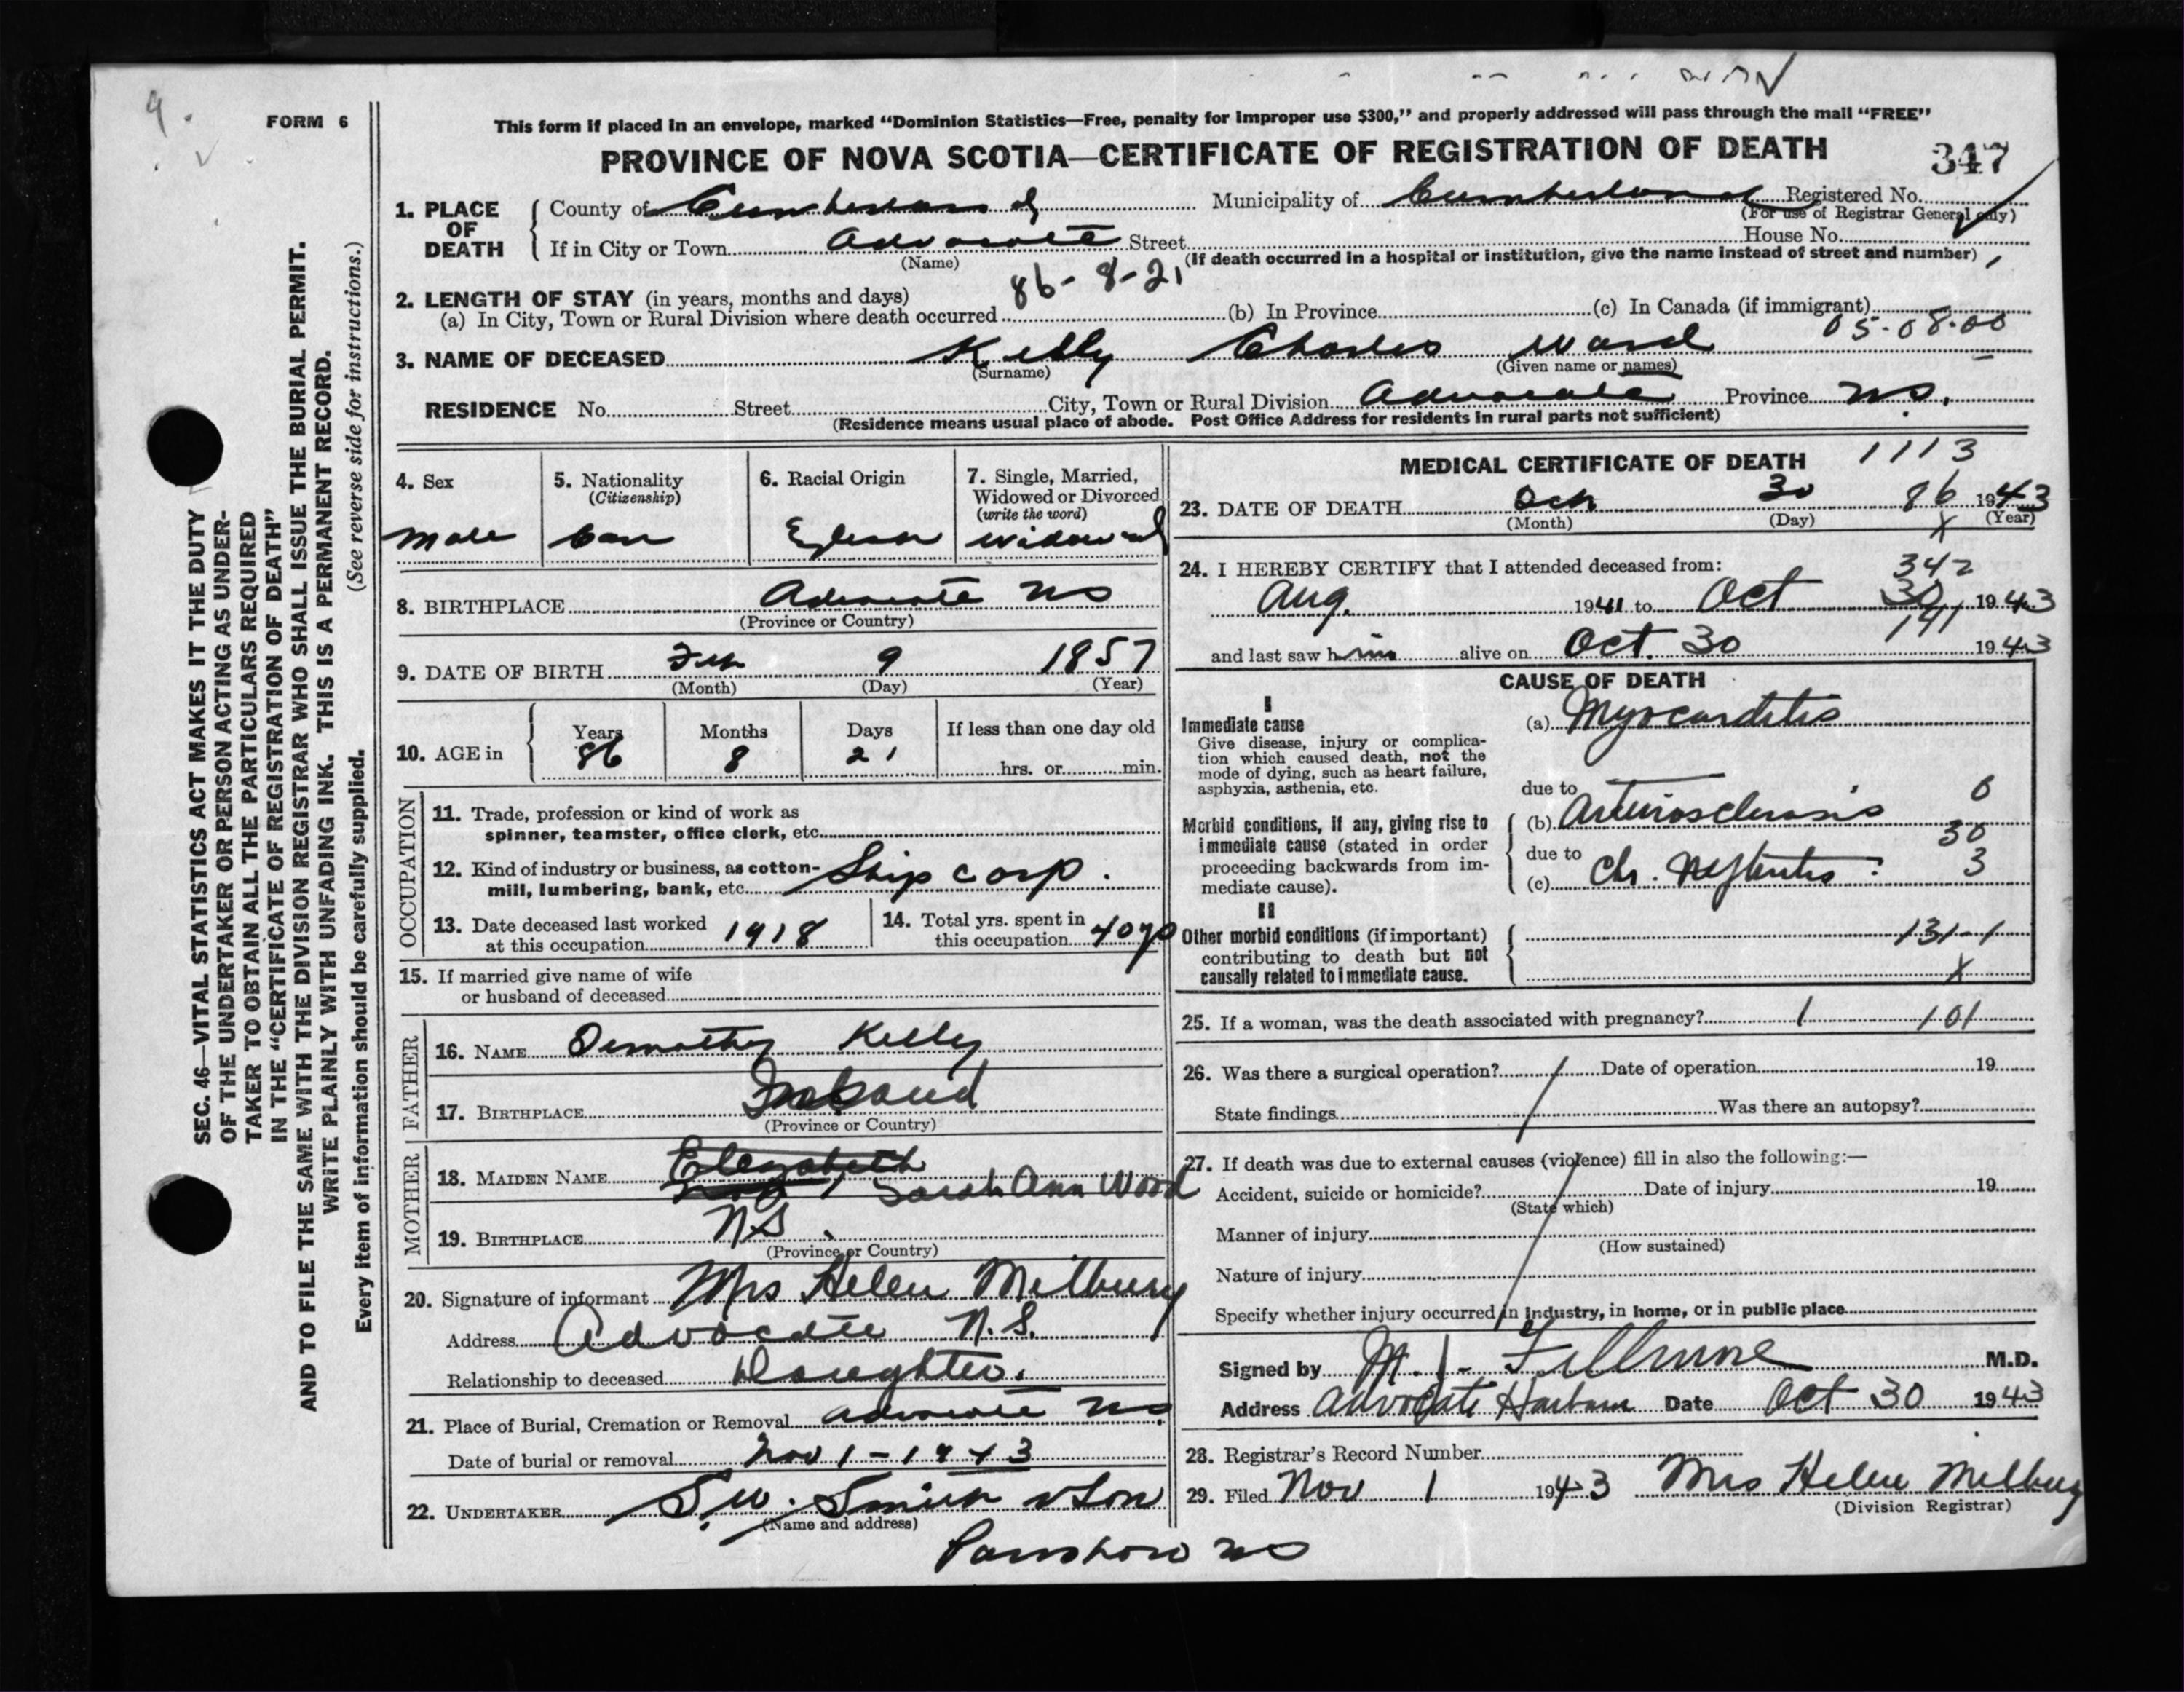 9.
FORM 6
This form if placed in an envelope, marked “Dominion Statistics—Free, penalty for improper use $300,” and properly addressed will pass through the mail “FREE”
PROVINCE OF NOVA SCOTIA—CERTIFICATE OF REGISTRATION OF DEATH
347
SEC. 46—VITAL STATISTICS ACT MAKES IT THE DUTY
OF THE UNDERTAKER OR PERSON ACTING AS UNDER-
TAKER TO OBTAIN ALL THE PARTICULARS REQUIRED
IN THE “CERTIFICATE OF REGISTRATION OF DEATH”
AND TO FILE THE SAME WITH THE DIVISION REGISTRAR WHO SHALL ISSUE THE BURIAL PERMIT.
WRITE PLAINLY WITH UNFADING INK. THIS IS A PERMANENT RECORD.
Every item of information should be carefully supplied. (See reverse side for instructions.)
1. PLACE OF DEATH
County of Cumberland Municipality of Cumberland Registered No.
(For use of Registrar General only)
If in City or Town Advocate Street House No.
(Name) (If death occurred in a hospital or institution, give the name instead of street and number)
2. LENGTH OF STAY (in years, months and days) 86-8-21
(a) In City, Town or Rural Division where death occurred (b) In Province (c) In Canada (if immigrant)
05-08-00
3. NAME OF DECEASED Kelly Charles Ward
(Surname) (Given name or names)
RESIDENCE No. Street City, Town or Rural Division Advocate Province NS.
(Residence means usual place of abode. Post Office Address for residents in rural parts not sufficient)
4. Sex
Male
5. Nationality
(Citizenship)
Can
6. Racial Origin
7. Single, Married,
Widowed or Divorced
(write the word)
Widowed
8. BIRTHPLACE Advocate NS
(Province or Country)
9. DATE OF BIRTH Feb 9 1857
(Month) (Day) (Year)
10. AGE in
Years Months Days If less than one day old
86 8 21 hrs. or min.
OCCUPATION
11. Trade, profession or kind of work as
spinner, teamster, office clerk, etc.
12. Kind of industry or business, as cotton-
mill, lumbering, bank, etc. Ship carp.
13. Date deceased last worked
at this occupation 1918
14. Total yrs. spent in
this occupation 40
15. If married give name of wife
or husband of deceased
FATHER
16. NAME Kelly
17. BIRTHPLACE
(Province or Country)
MOTHER
18. MAIDEN NAME Elezabeth
Sarah Ann Wood
19. BIRTHPLACE NS.
(Province or Country)
20. Signature of informant Mrs Helen Melbury
Address Advocate N.S.
Relationship to deceased Daughter.
21. Place of Burial, Cremation or Removal Advocate NS
Date of burial or removal Nov 1-1943
22. UNDERTAKER S.W. Smith & Son
(Name and address)
Parrsboro NS
MEDICAL CERTIFICATE OF DEATH 1113
23. DATE OF DEATH Oct 30 86 1943
(Month) (Day) (Year)
X
24. I HEREBY CERTIFY that I attended deceased from: 342
Aug. 1941 to Oct 30 1943
191
and last saw him alive on Oct. 30 1943
CAUSE OF DEATH
I
Immediate cause
Give disease, injury or complica-
tion which caused death, not the
mode of dying, such as heart failure,
asphyxia, asthenia, etc.
(a) Myocarditis
due to 6
Morbid conditions, if any, giving rise to
immediate cause (stated in order
proceeding backwards from im-
mediate cause).
(b) Arteriosclerosis
30
due to
(c) Chr. Nephritis 3
II
Other morbid conditions (if important)
contributing to death but not
causally related to immediate cause.
131-1
X
25. If a woman, was the death associated with pregnancy? 1 101
26. Was there a surgical operation? Date of operation 19
State findings Was there an autopsy?
27. If death was due to external causes (violence) fill in also the following:—
Accident, suicide or homicide? Date of injury 19
(State which)
Manner of injury
(How sustained)
Nature of injury
Specify whether injury occurred in industry, in home, or in public place
Signed by Fillmore M.D.
Address Advocate Harbour Date Oct 30 1943
28. Registrar's Record Number
29. Filed Nov 1 1943 Mrs Helen Melbury
(Division Registrar)